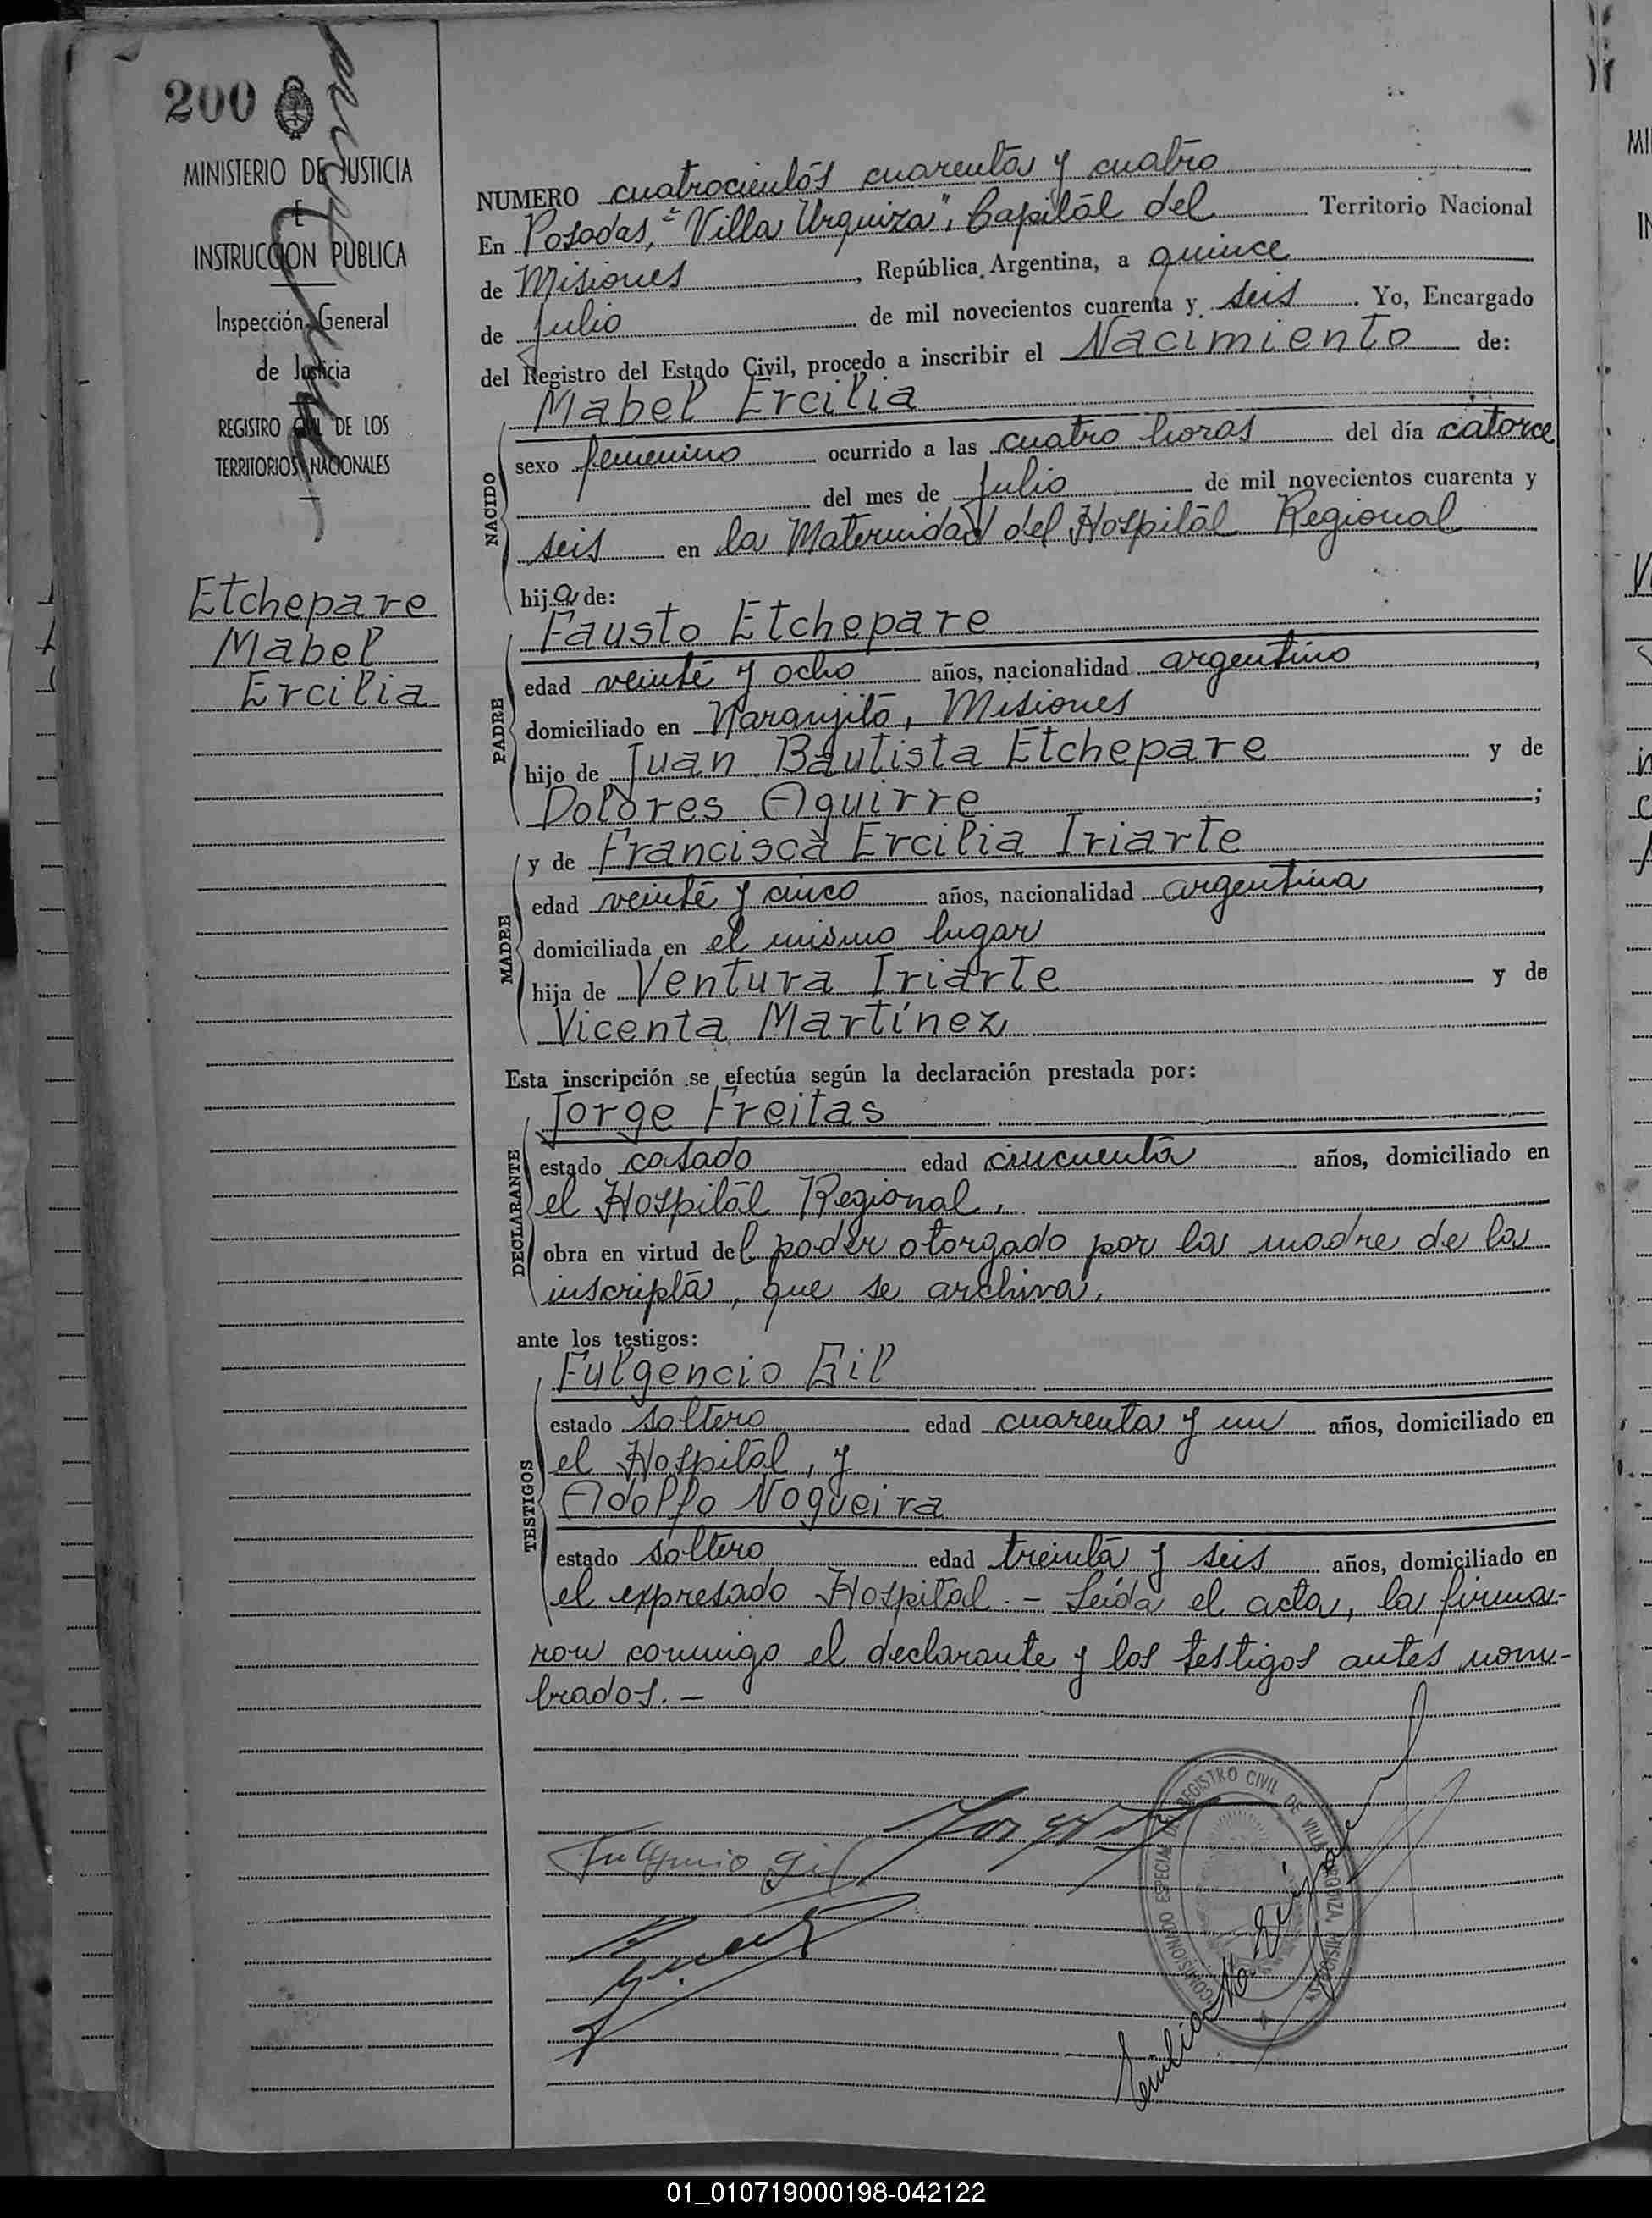 200
MINISTERIO DE JUSTICIA
E
INSTRUCCION PUBLICA
Inspección General
de Justicia
REGISTRO CIVIL DE LOS
TERRITORIOS NACIONALES
Etchepare
Mabel
Ercilia
NUMERO cuatrocientos cuarenta y cuatro
En Posadas, "Villa Urquiza", Capital del Territorio Nacional
de Misiones, República Argentina, a quince
de Julio de mil novecientos cuarenta y seis. Yo, Encargado
del Registro del Estado Civil, procedo a inscribir el Nacimiento de:
NACIDO
Mabel Ercilia
sexo femenino ocurrido a las cuatro horas del día catorce
del mes de Julio de mil novecientos cuarenta y
seis en la Maternidad del Hospital Regional
hija de:
PADRE
Fausto Etchepare
edad veinte y ocho años, nacionalidad argentino,
domiciliado en Naranjito, Misiones
hijo de Juan Bautista Etchepare y de
Dolores Aguirre;
MADRE
y de Francisca Ercilia Iriarte
edad veinte y cinco años, nacionalidad argentina,
domiciliada en el mismo lugar
hija de Ventura Iriarte y de
Vicenta Martínez
Esta inscripción se efectúa según la declaración prestada por:
DECLARANTE
Jorge Freitas
estado casado edad cincuenta años, domiciliado en
el Hospital Regional,
obra en virtud del poder otorgado por la madre de la
inscripta, que se archiva,
ante los testigos:
TESTIGOS
Fulgencio Gil
estado soltero edad cuarenta y un años, domiciliado en
el Hospital, y
Adolfo Nogueira
estado soltero edad treinta y seis años, domiciliado en
el expresado Hospital. - Leída el acta, la firma-
ron conmigo el declarante y los testigos antes nom-
brados. -
Fulgencio Gil
COMISIONADO ESPECIAL DEL REGISTRO CIVIL DE VILLA URQUIZA, MISIONES
01_010719000198-042122